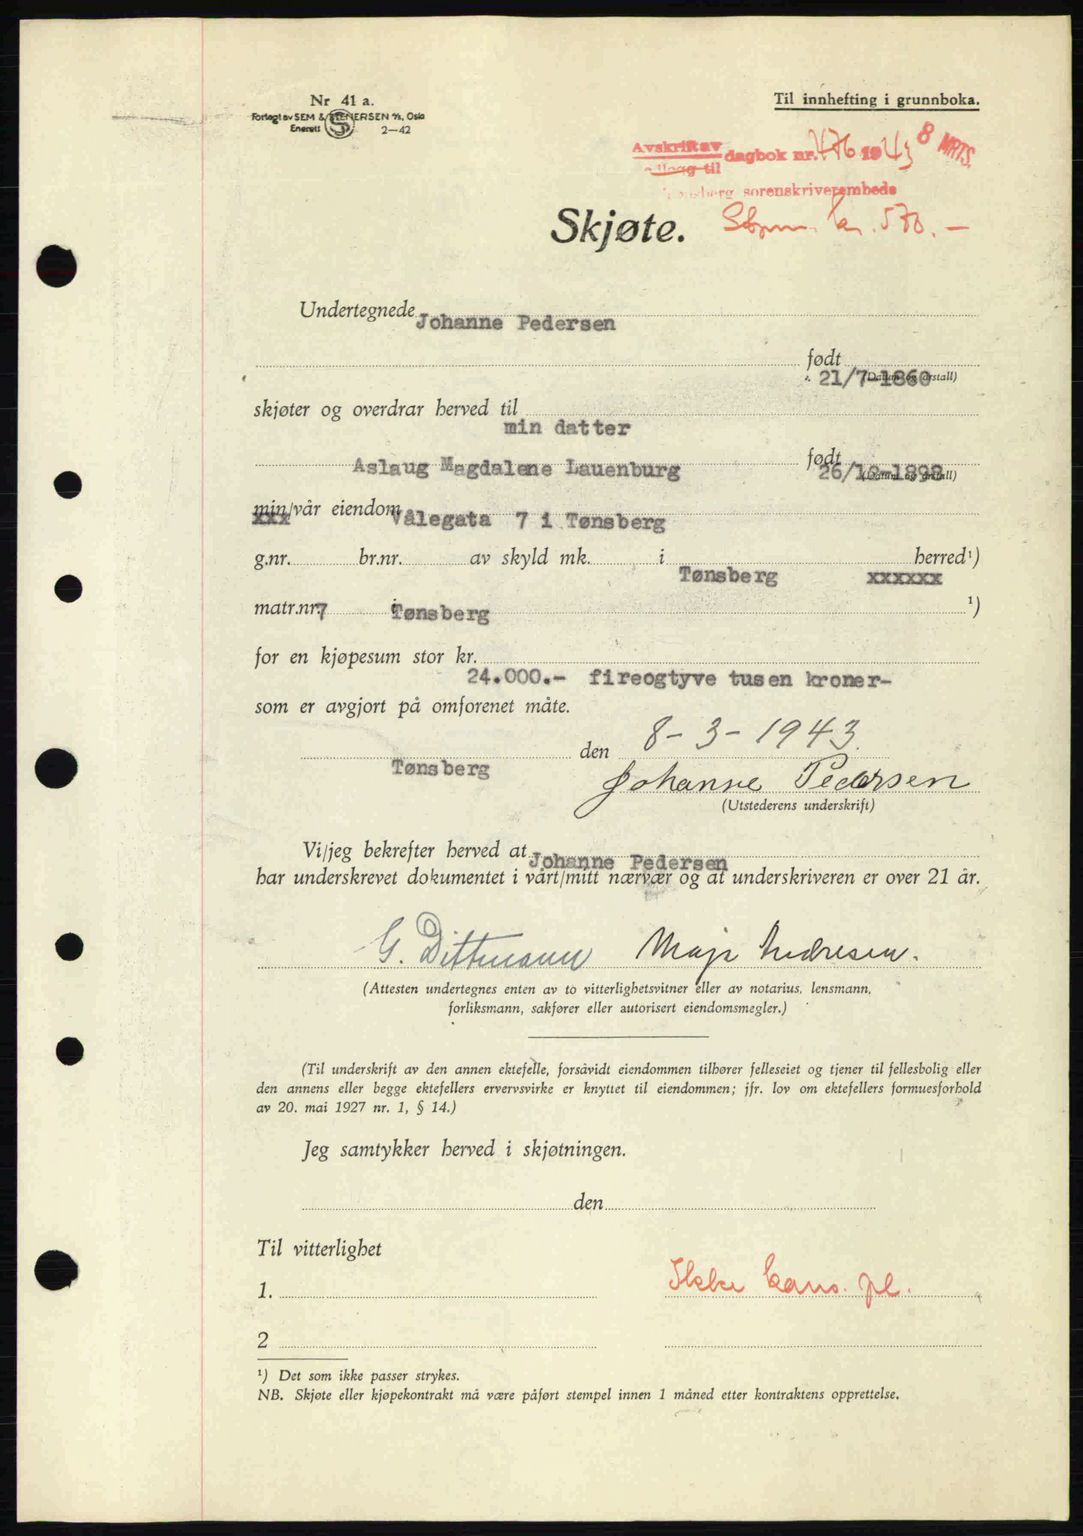 Nr 41 a.
Forlagt av SEM & STENERSEN A/S, Oslo
Enerett 2—42
Til innhefting i grunnboka.
8 MRTS.
Avskrift av
dagbok nr. 476 1943
til
Tønsberg sorenskriverembede
Skjøte.
kr. 570.—
Undertegnede Johanne Pedersen
født 21/7-1860
(Datum og årstall)
skjøter og overdrar herved til min datter
Aslaug Magdalene Lauenburg født 26/12-1898
(Datum og årstall)
min/vår eiendom Vålegata 7 i Tønsberg
xxx
g.nr. br.nr. av skyld mk. i Tønsberg herred¹)
xxxxxx
matr.nr. 7 i Tønsberg ¹)
for en kjøpesum stor kr. 24.000.- fireogtyve tusen kroner-
som er avgjort på omforenet måte.
Tønsberg den 8-3-1943.
Johanne Pedersen
(Utstederens underskrift)
Vi/jeg bekrefter herved at Johanne Pedersen
har underskrevet dokumentet i vårt/mitt nærvær og at underskriveren er over 21 år.
G. Dittmann Maja Andresen.
(Attesten undertegnes enten av to vitterlighetsvitner eller av notarius, lensmann,
forliksmann, sakfører eller autorisert eiendomsmegler.)
(Til underskrift av den annen ektefelle, forsåvidt eiendommen tilhører felleseiet og tjener til fellesbolig eller
den annens eller begge ektefellers ervervsvirke er knyttet til eiendommen; jfr. lov om ektefellers formuesforhold
av 20. mai 1927 nr. 1, § 14.)
Jeg samtykker herved i skjøtningen.
den
Til vitterlighet
1.
Ikke kons. pl.
2
¹) Det som ikke passer strykes.
NB. Skjøte eller kjøpekontrakt må være påført stempel innen 1 måned etter kontraktens opprettelse.